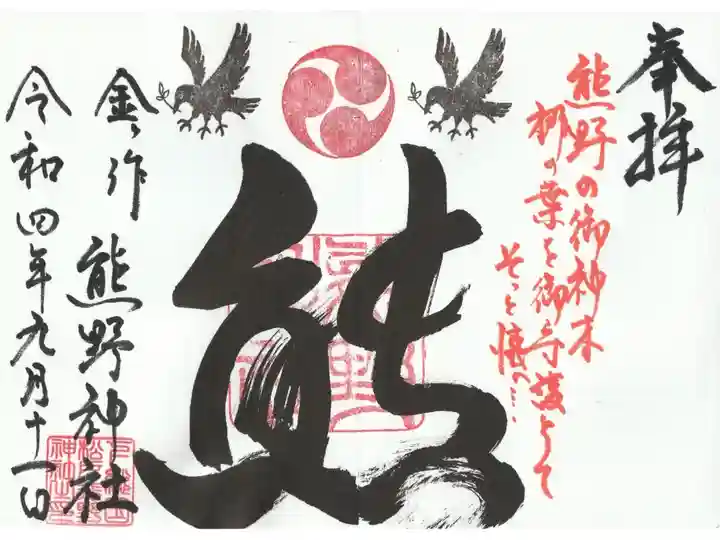 奉拝
熊野の御神木
梛の葉を御守護として
そっと懐へ……
熊
金ヶ作
熊野神社
令和四年九月十一日